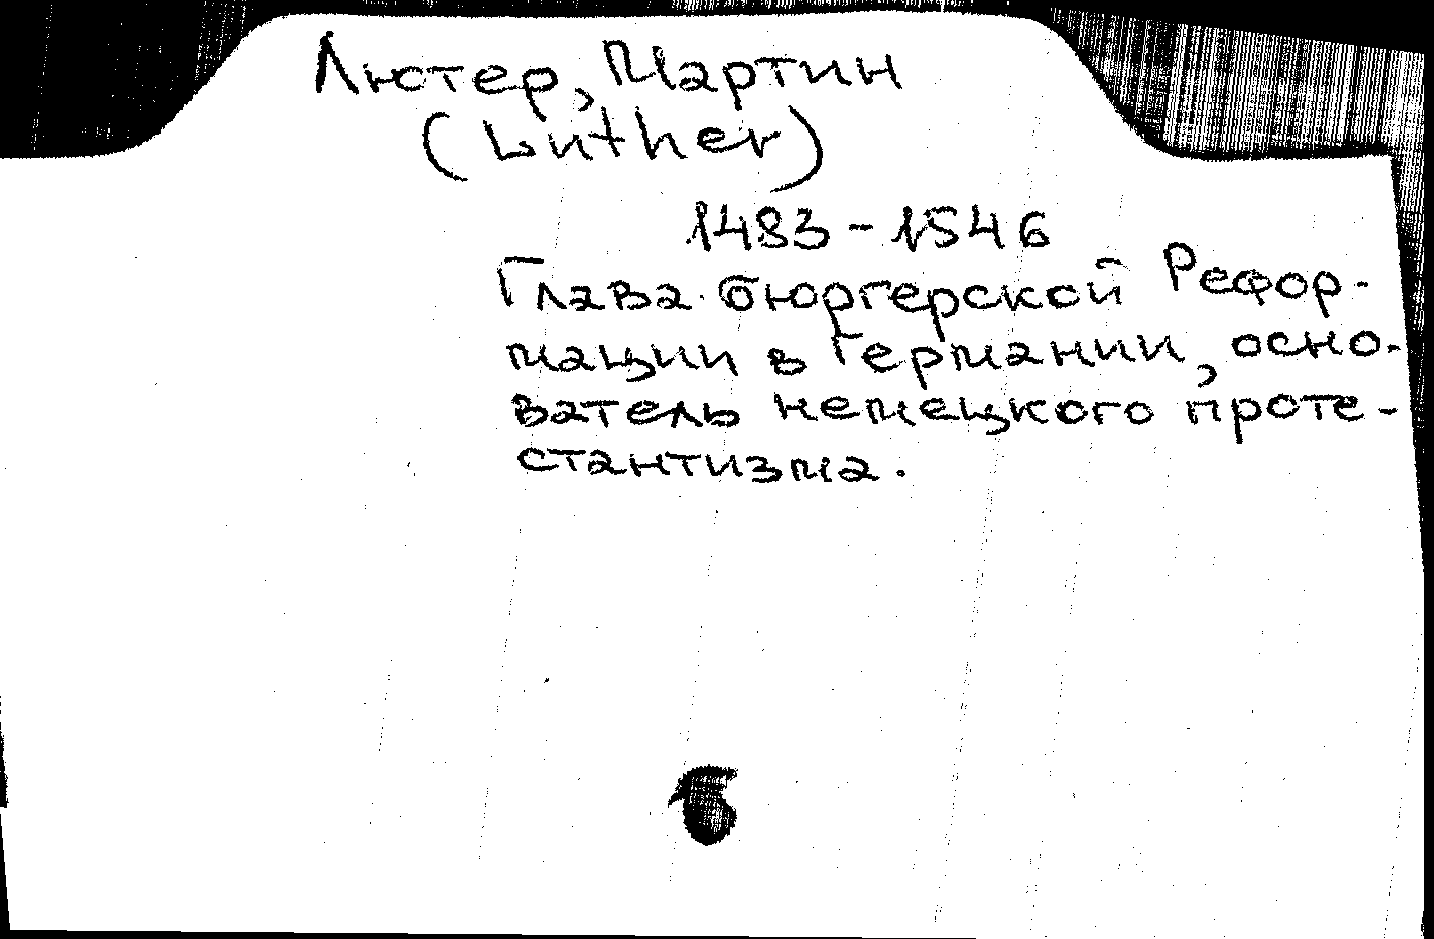 Лютер, Мартин
(Luther)
1483-1546
Глава бюргерской Рефор-
мации в Германии, осно-
ватель немецкого проте-
стантизма.